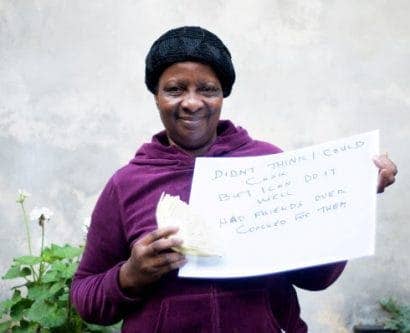 DIDN'T THINK I COULD
COOK
BUT I CAN DO IT
WELL
HAD FRIENDS OVER
COOKED FOR THEM